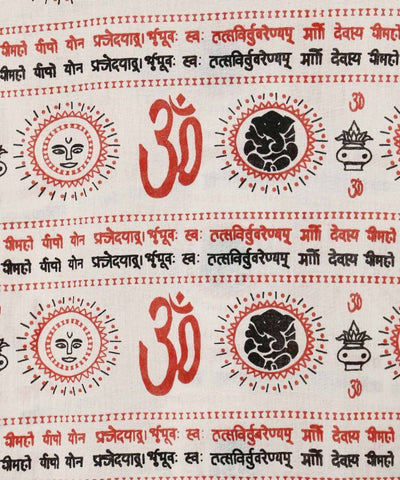 यीमहो यीषो यौन प्रजेदयाद्रा। र्भूभूवः स्वः तत्सविर्तुबरेण्यम् र्मागो देवाय यीमहो
यीमहो यीषो यौन प्रजेदयाद्रा। र्भूभूवः स्वः तत्सविर्तुबरेण्यम् र्मागो देवाय यीमहो
ॐ ॐ
ॐ
यीमहो यीषो यौन प्रजेदयाद्रा। र्भूभूवः स्वः तत्सविर्तुबरेण्यम् र्मागो देवाय यीमहो
यीमहो यीषो यौन प्रजेदयाद्रा। र्भूभूवः स्वः तत्सविर्तुबरेण्यम् र्मागो देवाय यीमहो
ॐ ॐ
ॐ
यीमहो यीषो यौन प्रजेदयाद्रा। र्भूभूवः स्वः तत्सविर्तुबरेण्यम् र्मागो देवाय यीमहो
यीमहो यीषो यौन प्रजेदयाद्रा। र्भूभूवः स्वः तत्सविर्तुबरेण्यम् र्मागो देवाय यीमहो